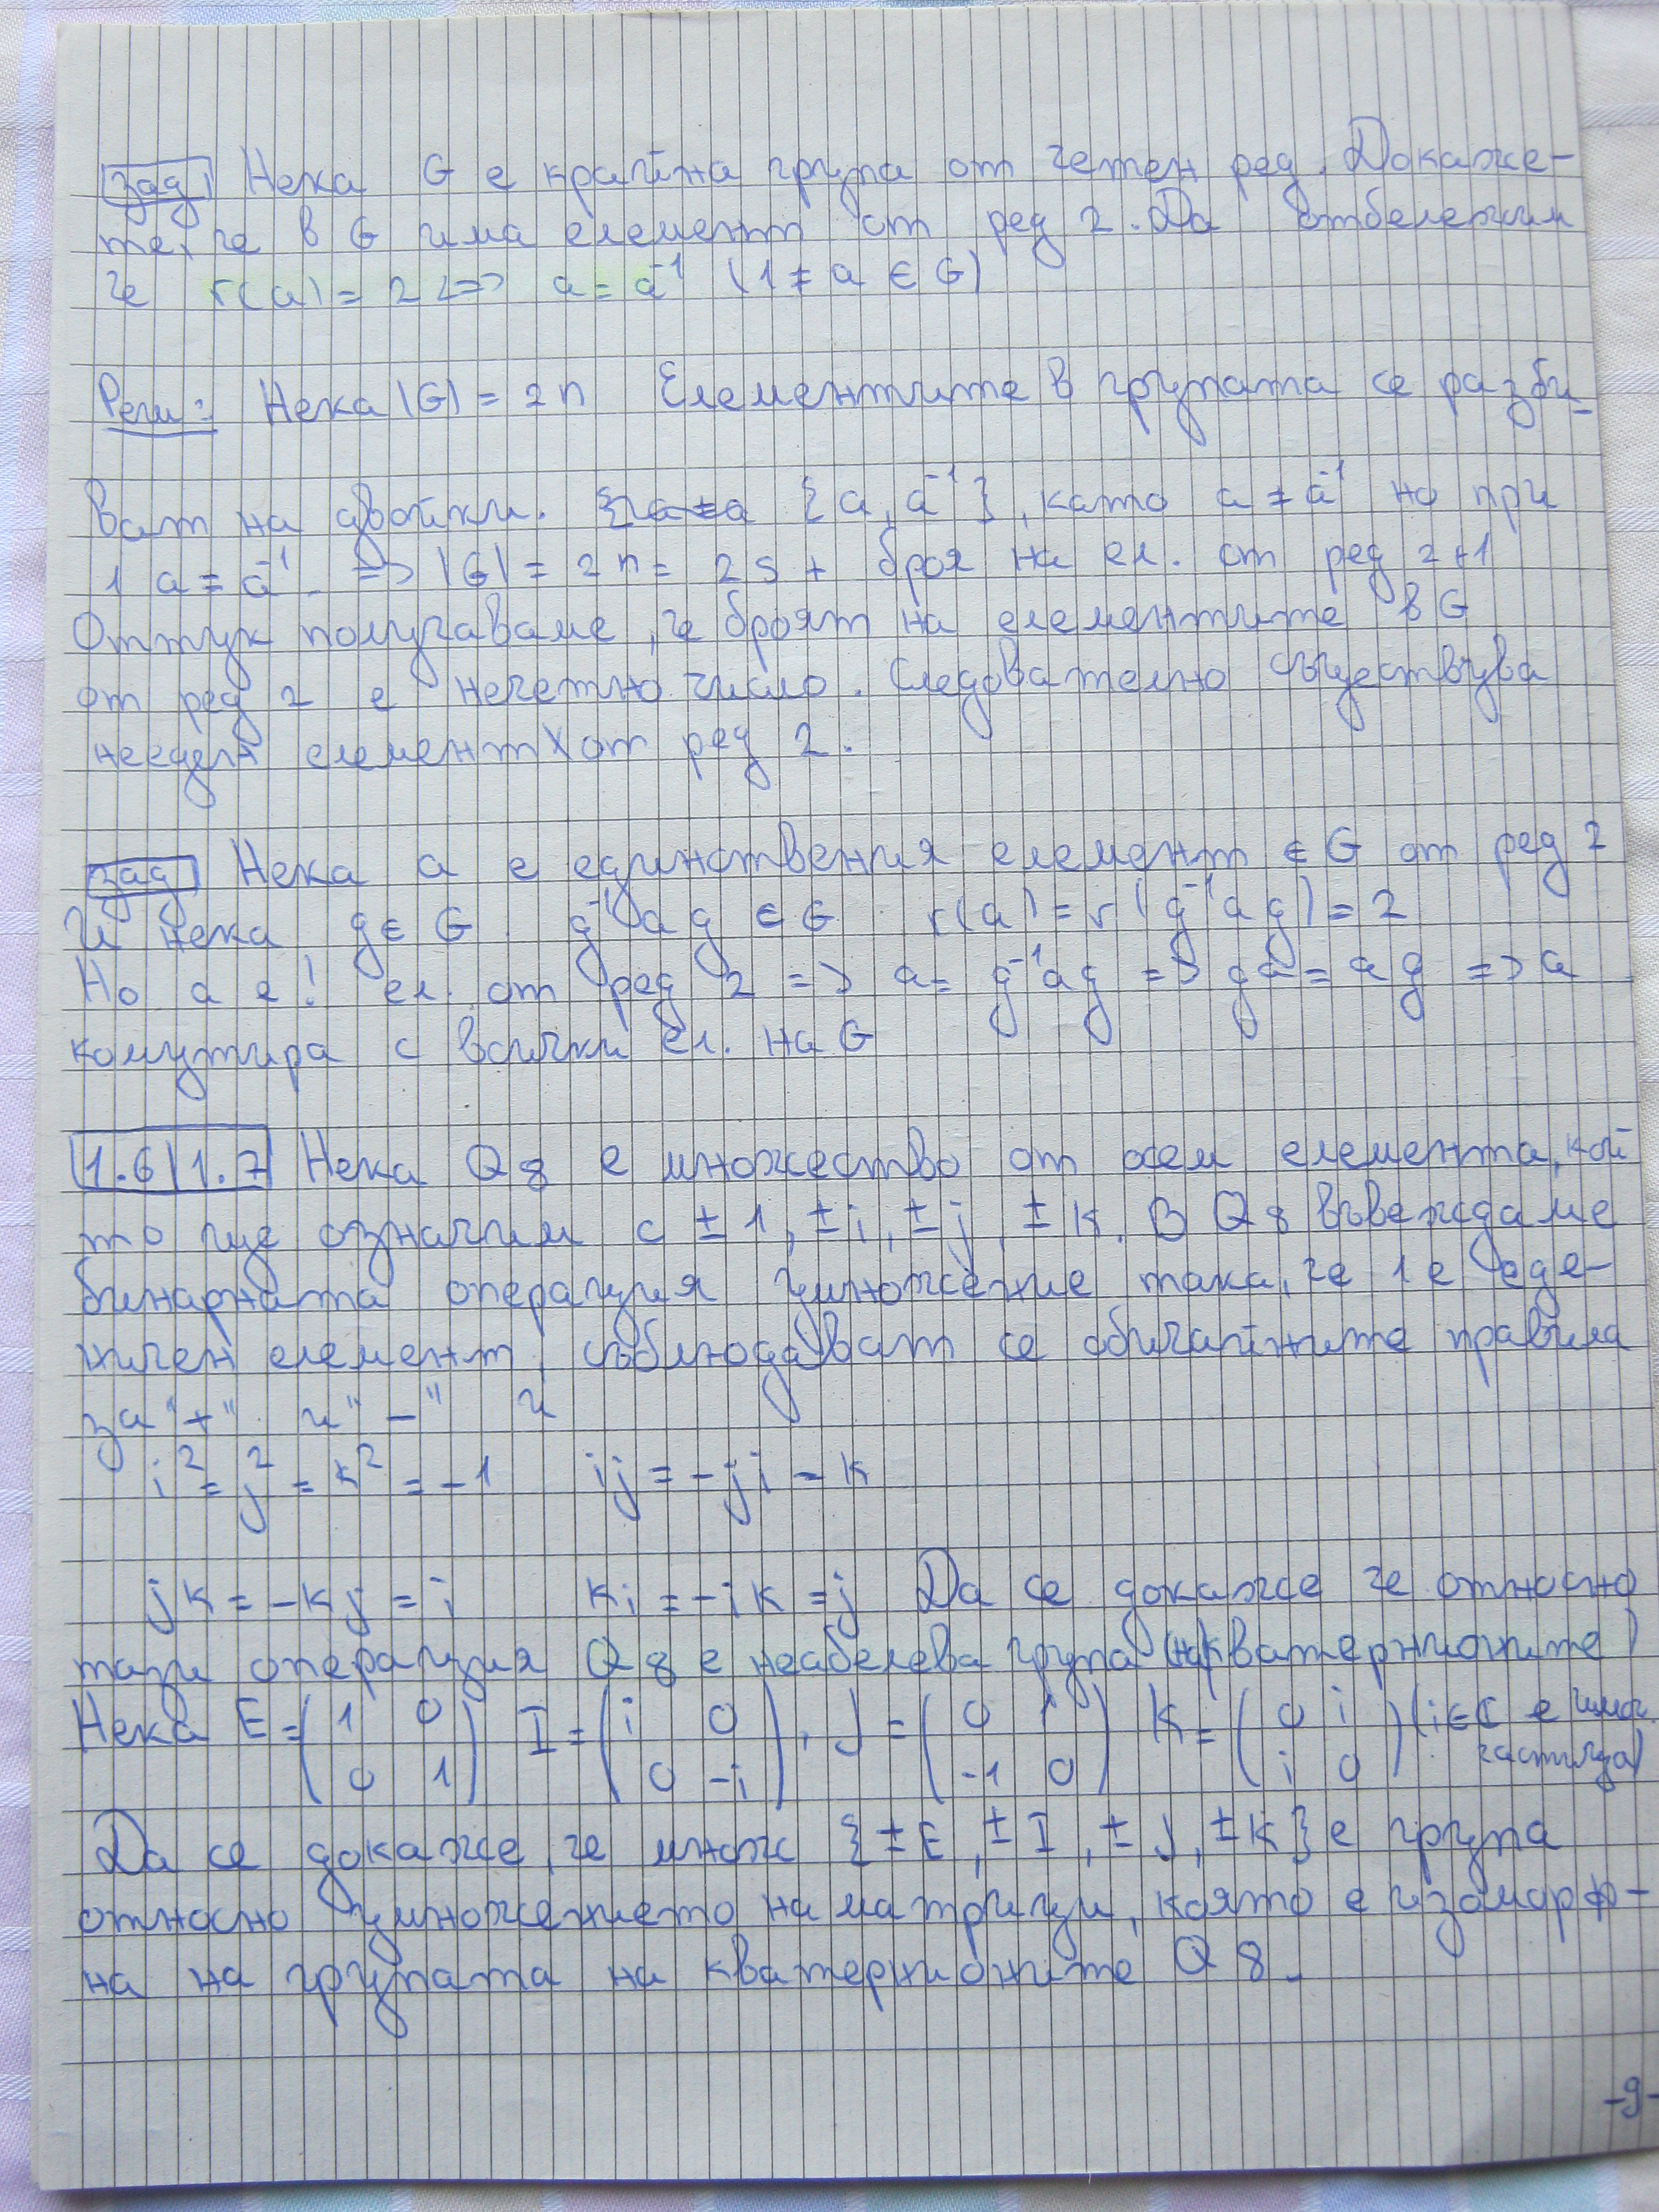 зад Нека G е крайна група от четен ред. Докаже-
те, че в G има елемент от ред 2. Да отбележим
че r(a) = 2 <=> a = a⁻¹ (1 ≠ a ∈ G)
Реш: Нека |G| = 2n Елементите в групата се разби-
ват на двойки. {a, a⁻¹}, като a ≠ a⁻¹ но при
1 a = a⁻¹. => |G| = 2n = 2s + броя на ел. от ред 2 + 1
Оттук получаваме, че броят на елементите в G
от ред 2 е нечетно число. Следователно съществува
елемент x от ред 2.
зад Нека a е единствения елемент ∈ G от ред 2
И нека g ∈ G g⁻¹ag ∈ G r(a) = r(g⁻¹ag) = 2
Но a е ! ел. от ред 2 => a = g⁻¹ag => ga = ag => a
комутира с всички ел. на G
1.6|1.7 Нека Q8 е множество от осем елемента, кои
то ще означим с ±1, ±i, ±j, ±k. В Q8 въвеждаме
бинарната операция умножение така, че 1 е еде-
ничен елемент, съблюдават се обичайните правила
за "+" и "-" и
i² = j² = k² = -1 ij = -ji = k
jk = -kj = i ki = -ik = j Да се докаже че относно
тази операция Q8 е неабелева група (на кватернионите)
Нека E = (1 0 I = (i 0 , J = (0 1 K = (0 i (i ∈ C е имаг.
0 1) 0 -i) -1 0) i 0) частица)
Да се докаже, че множ {±E, ±I, ±J, ±K} е група
относно умножението на матрици, която е изоморф-
на на групата на кватернионите Q8.
-9-